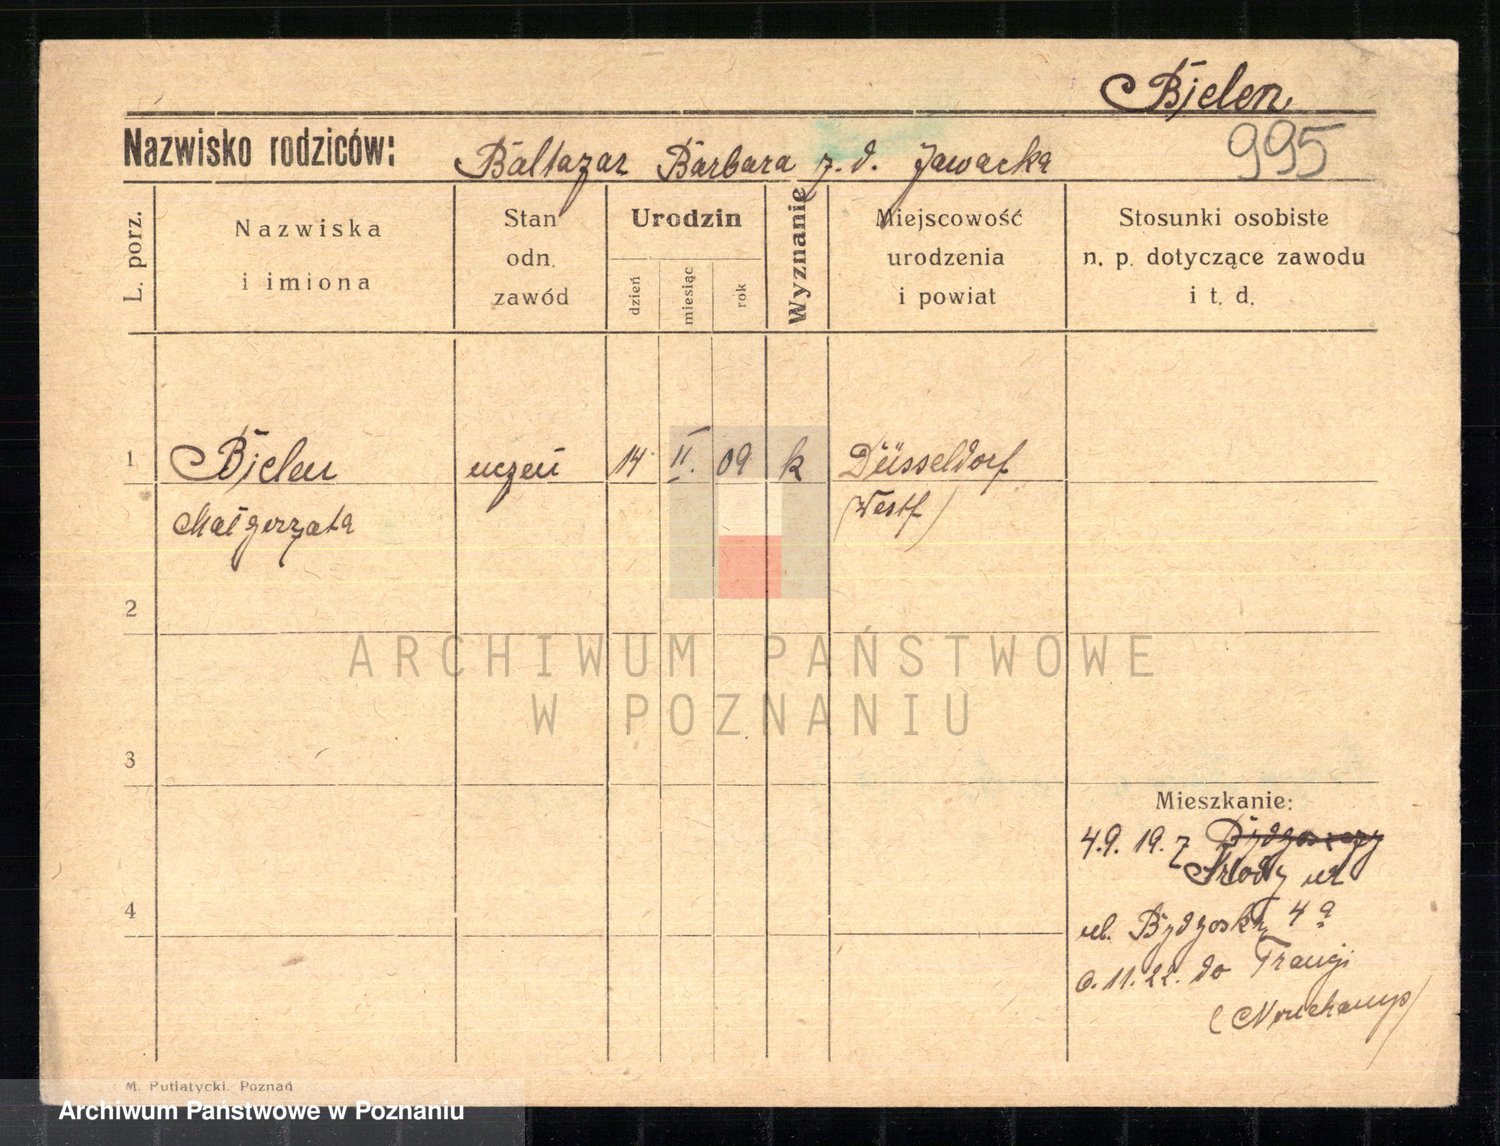 Bielen
995
Nazwisko rodziców: Baltazar Barbara z. d. Jawacka
L. porz.
Nazwiska
i imiona
Stan
odn.
zawód
Urodzin
dzień
miesiąc
rok
Wyznanie
Miejscowość
urodzenia
i powiat
Stosunki osobiste
n. p. dotyczące zawodu
i t. d.
1 Bielen uczeń 14 II. 09 k Düsseldorf
Małgorzata (Westf)
2
3
4
Mieszkanie:
4.9. 19. z Bydgoszczy
Środy
ul. Bydgoska 4a
11. 22. do Francji
ARCHIWUM PAŃSTWOWE
W POZNANIU
M. Putiatycki. Poznań
Archiwum Państwowe w Poznaniu